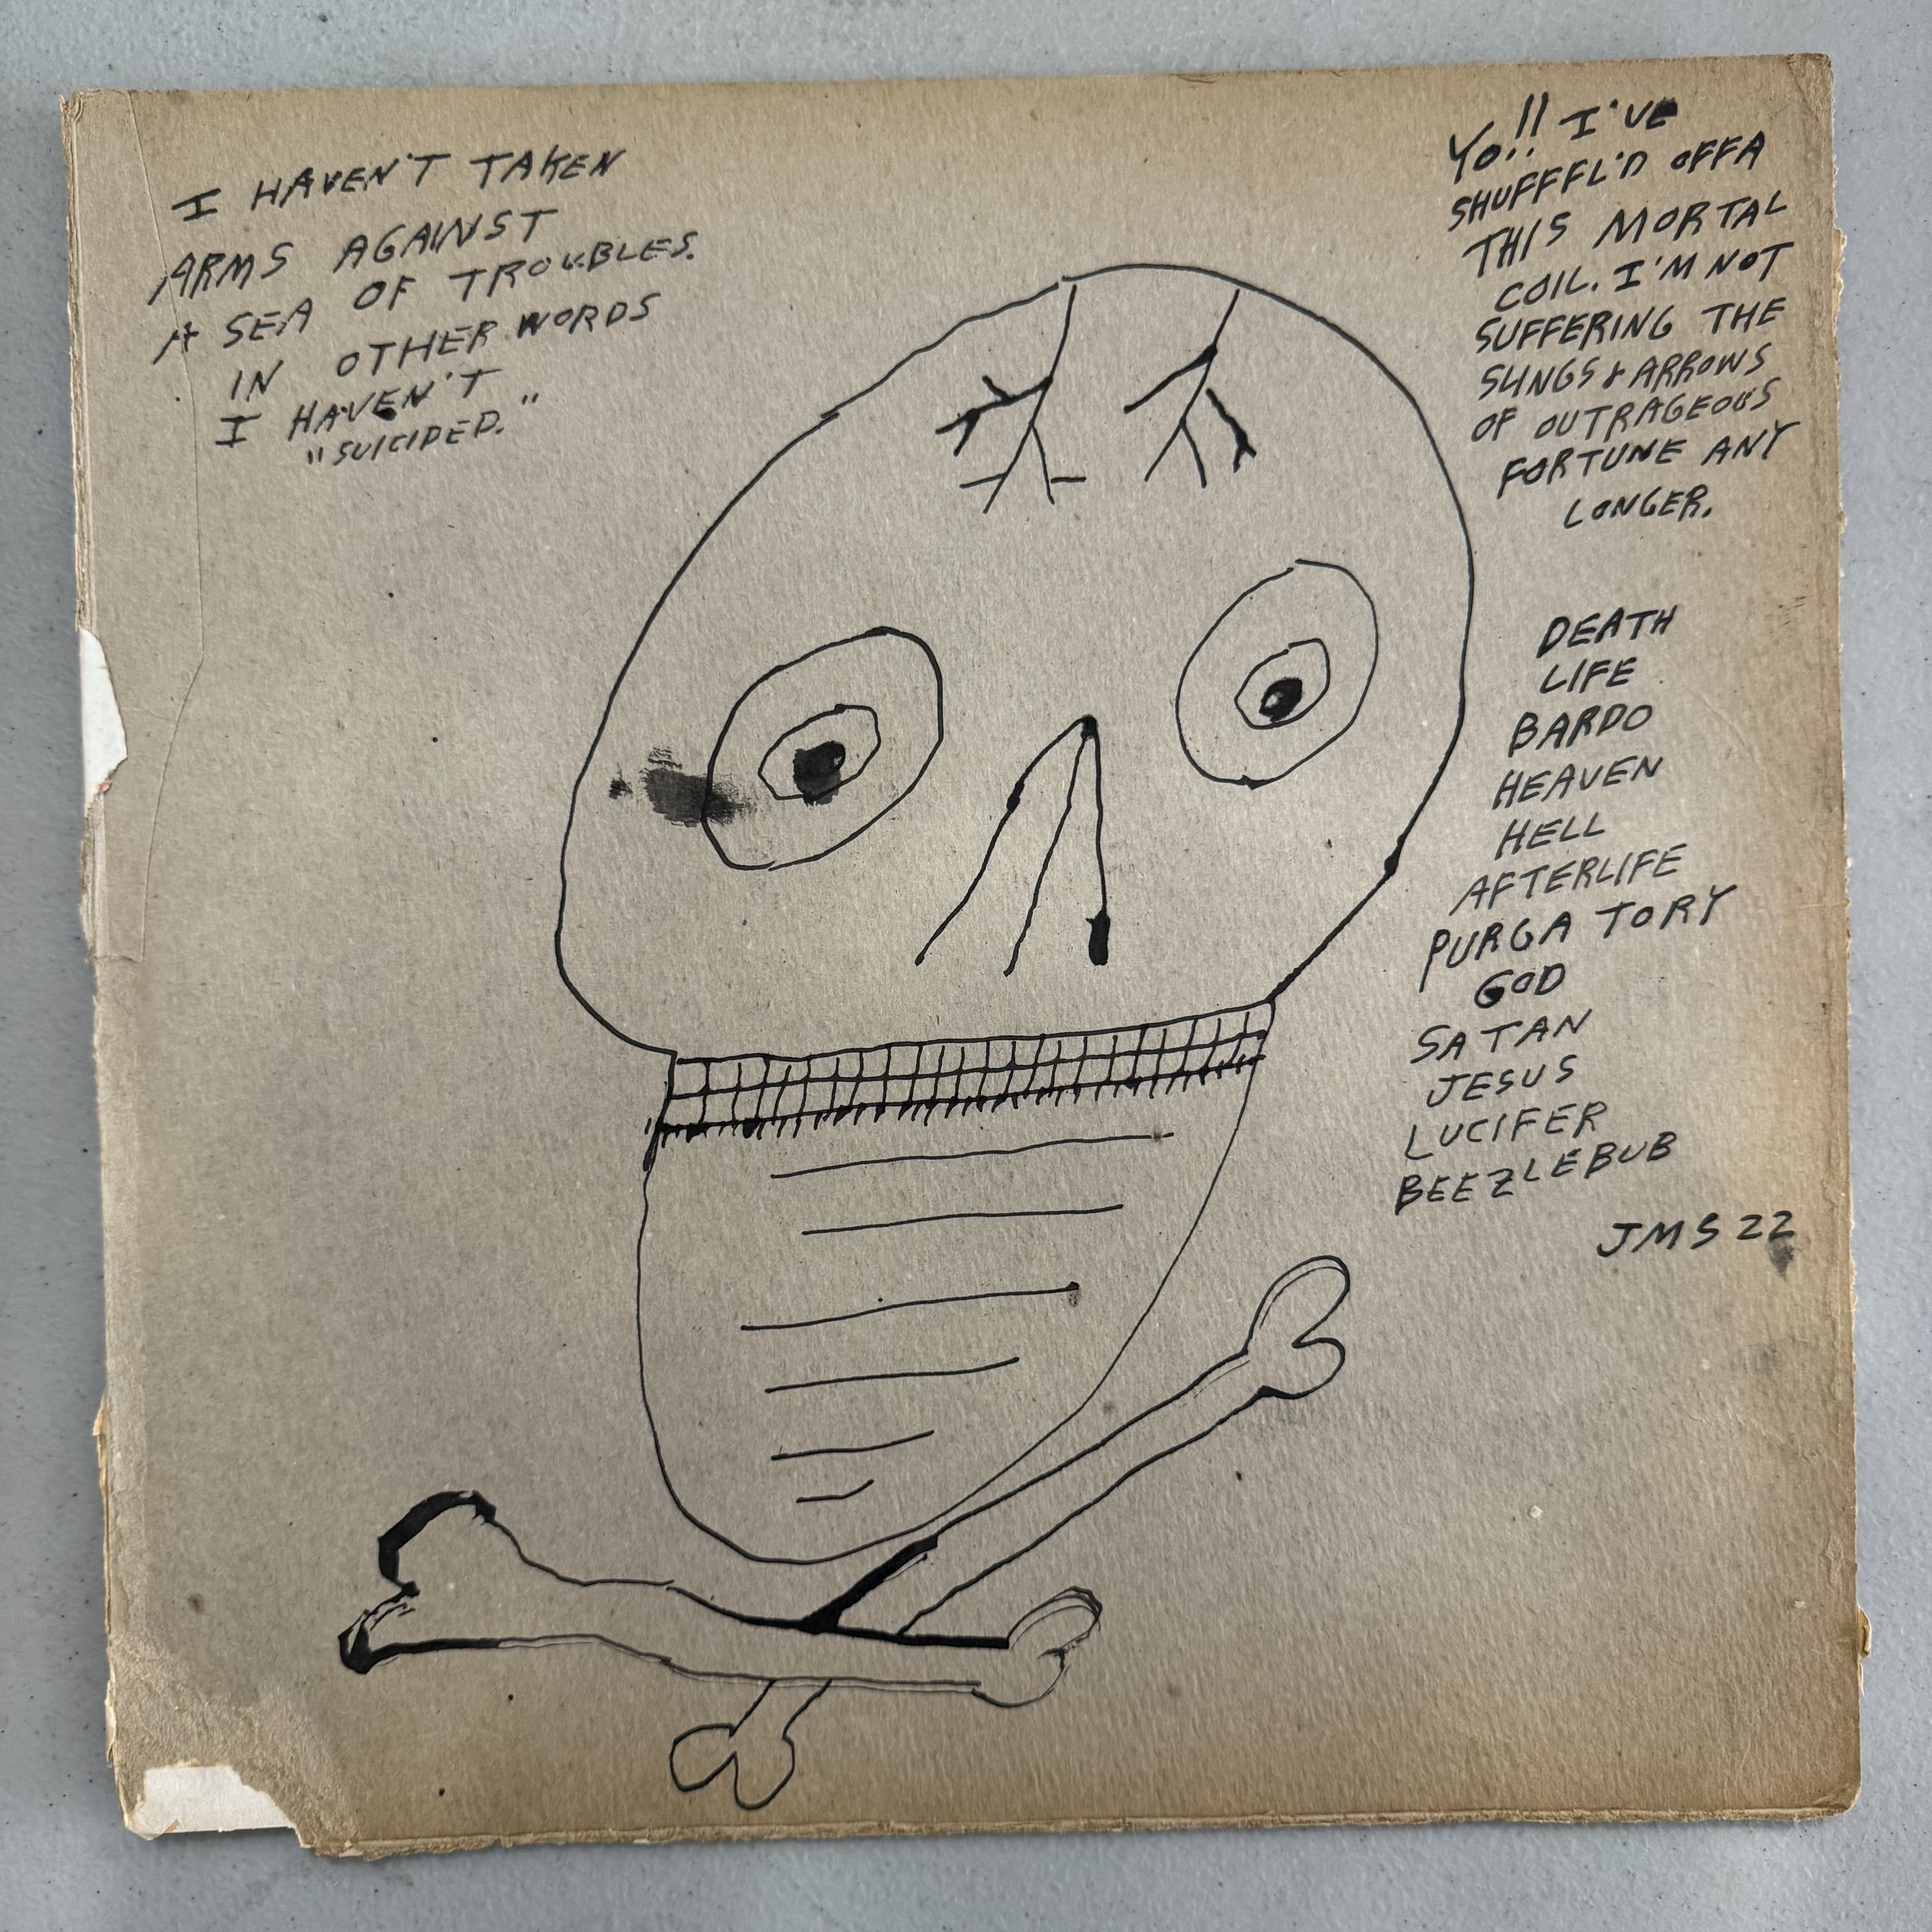 I HAVEN'T TAKEN
ARMS AGAINST
A SEA OF TROUBLES.
IN OTHER WORDS
I HAVEN'T
"SUICIDED."
YO!! I'VE
SHUFFFL'D OFFA
THIS MORTAL
COIL. I'M NOT
SUFFERING THE
SLINGS & ARROWS
OF OUTRAGEOUS
FORTUNE ANY
LONGER.
DEATH
LIFE
BARDO
HEAVEN
HELL
AFTERLIFE
PURGA TORY
GOD
SATAN
JESUS
LUCIFER
BEEZLEBUB
JMS 22